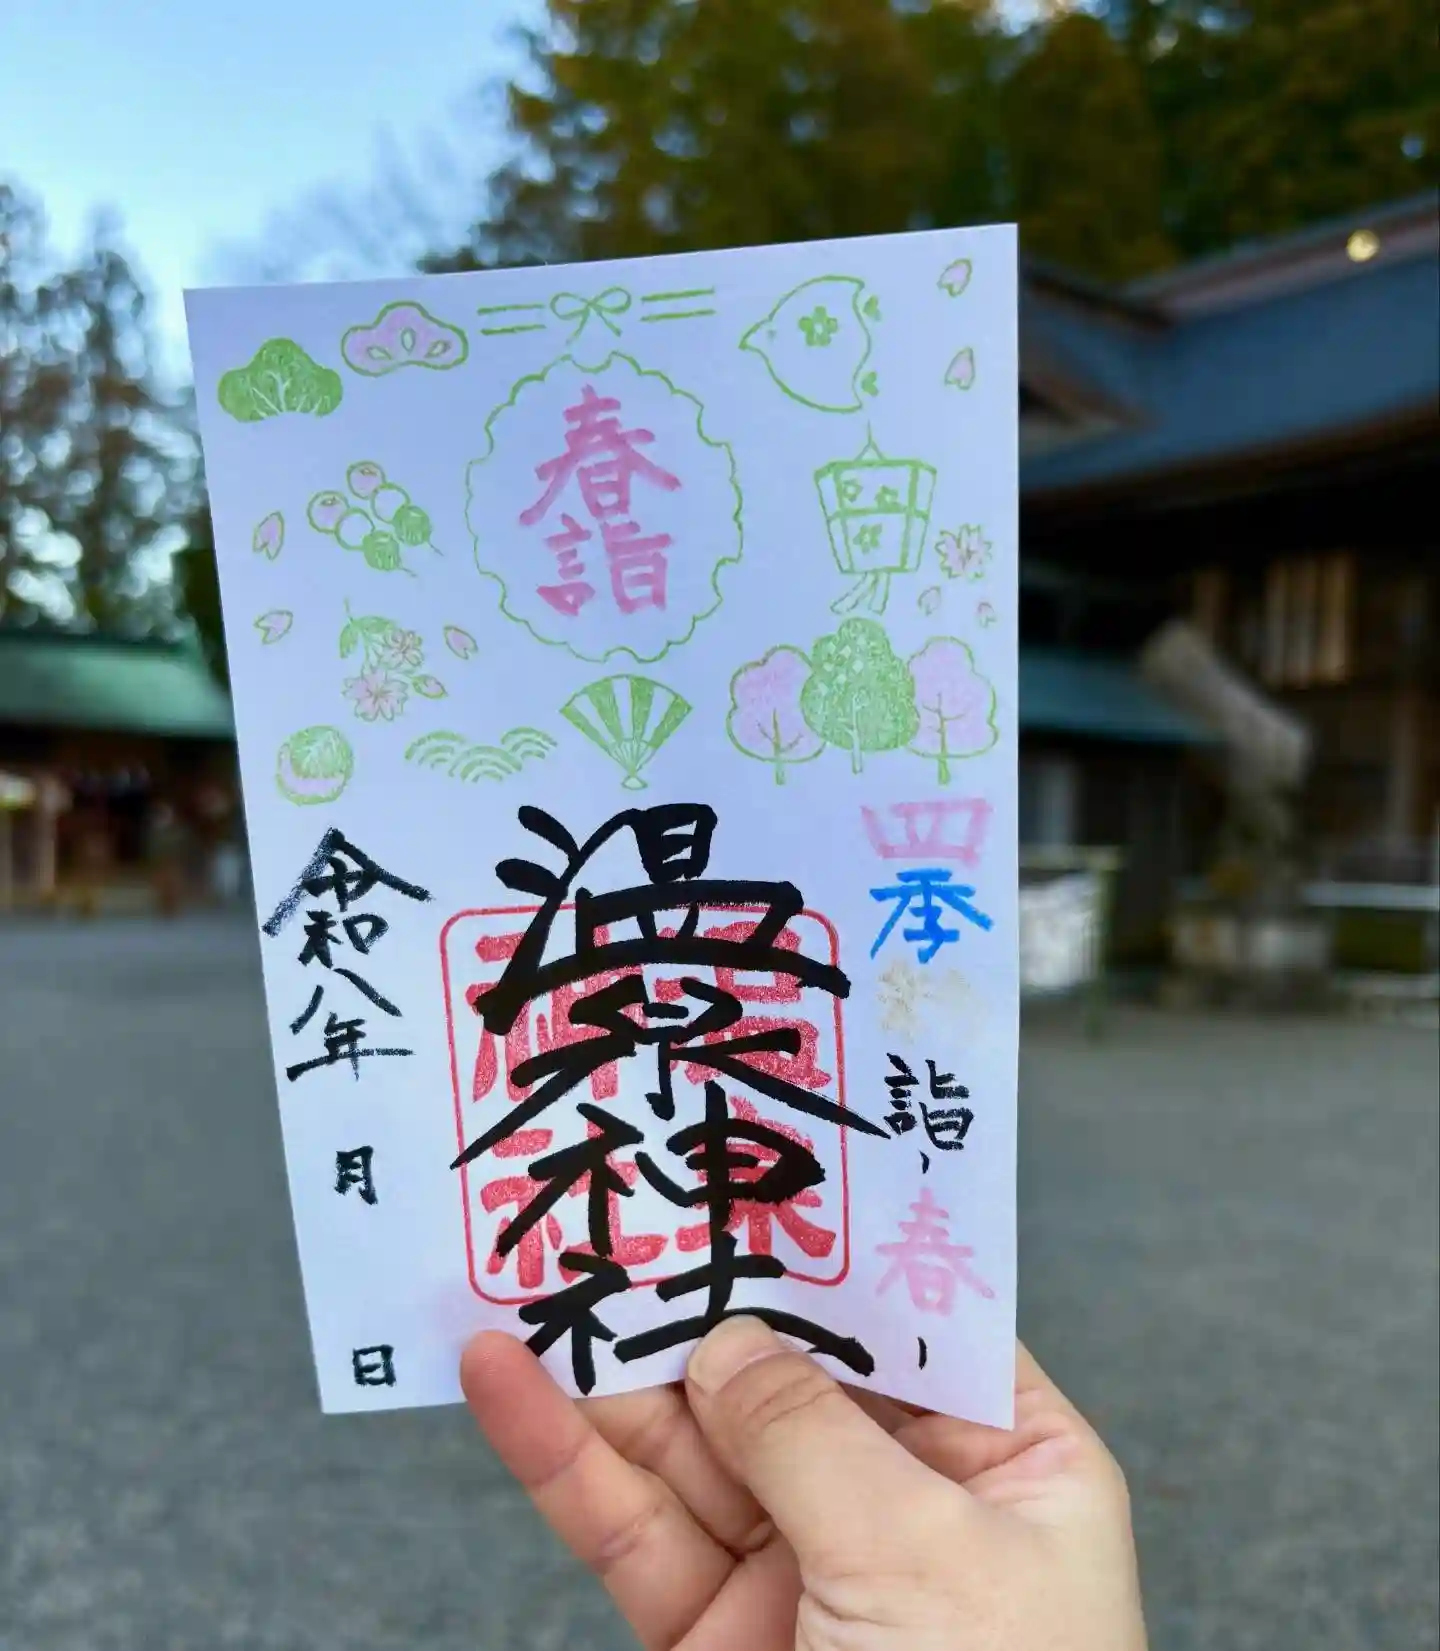 春詣
四季 詣 ー春ー
温泉神社
温泉神社
令和八年 月 日